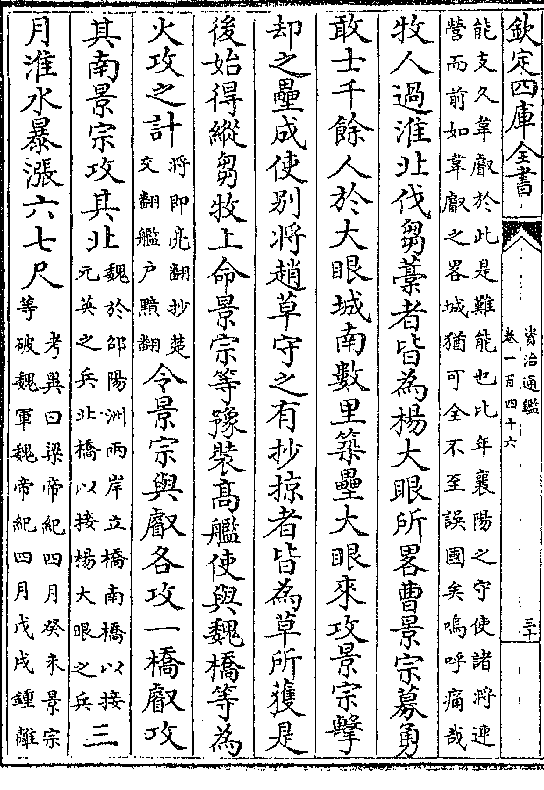 欽定四庫全書
資治通鑑
卷一百四十六
三十
能支久韋叡於此是難能也比年襄陽之守使諸將連
營而前如韋叡之畧城猶可全不至誤國矣嗚呼痛哉
牧人過淮北伐芻藁者皆為楊大眼所畧曹景宗募勇
敢士千餘人於大眼城南數里築壘大眼來攻景宗擊
却之壘成使别將趙草守之有抄掠者皆為草所獲是
後始得縱芻牧上命景宗等豫裝髙艦使與魏橋等為
火攻之計將即亮翻抄楚交翻艦户黯翻令景宗與叡各攻一橋叡攻
其南景宗攻其北魏於邵陽洲兩岸立橋南橋以接元英之兵北橋以接楊大眼之兵三
月淮水暴漲六七尺考異曰梁帝紀四月癸未景宗等破魏軍魏帝紀四月戊戌鍾離